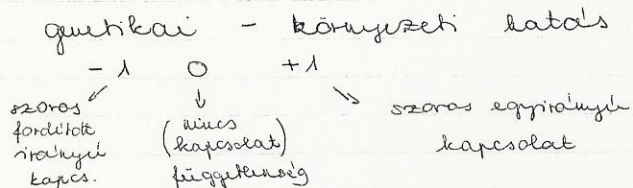 genetikai – környezeti hatás
-1 0 +1
szoros
fordított
irányú
kapcs.
(nincs
kapcsolat)
függetlenség
szoros egyirányú
kapcsolat